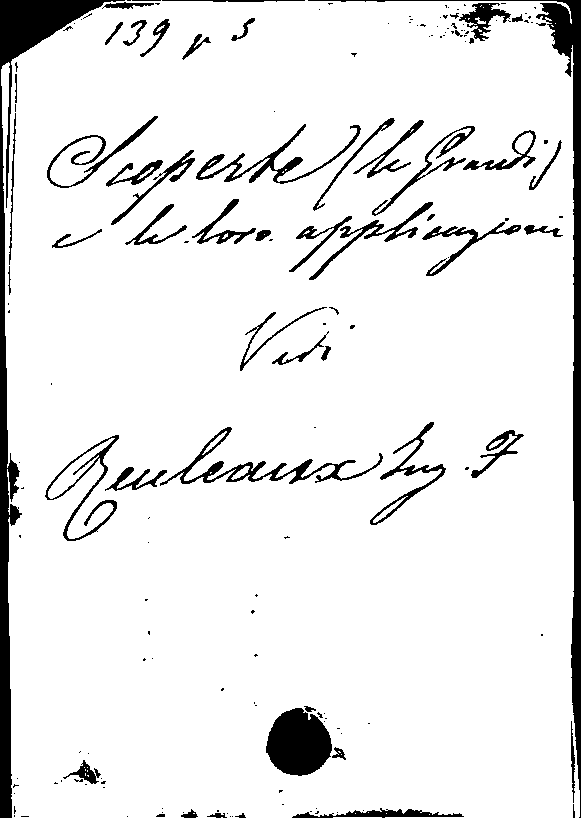 139 v 3
Scoperte (le Grandi)
e le loro applicazioni
Vedi
Reuleaux Ing. F